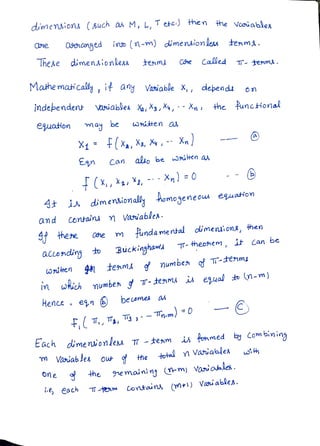 dimensions (such as M, L, T etc.) then the variables
are arranged into (n-m) dimensionless terms.
These dimensionless terms are called π- terms.
Mathematically, if any variable X₁, depends on
independent variables X₂, X₃, X₄, -- Xₙ, the functional
equation may be written as
X₁ = f(X₂, X₃, X₄, -- Xₙ) — ⓐ
Eqn can also be written as
f(X₁, X₂, X₃, --- Xₙ) = 0 -- ⓑ
It is dimensionally homogeneous equation
and contains n variables.
If there are m fundamental dimensions, then
according to Buckinghams π-theorem, it can be
written in terms of number of π-terms
in which number of π-terms is equal to (n-m)
Hence, eqn ⓑ becomes as
f₁(π₁, π₂, π₃, -- πₙ₋ₘ) = 0 — ⓒ
Each dimensionless π-term is formed by combining
m variables out of the total n variables with
one of the remaining (n-m) variables.
i.e, each π-term contains (m+1) variables.